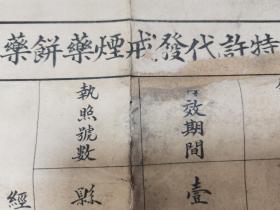 特許代發戒煙藥餅藥
效期間
壹
執照號數
縣
經